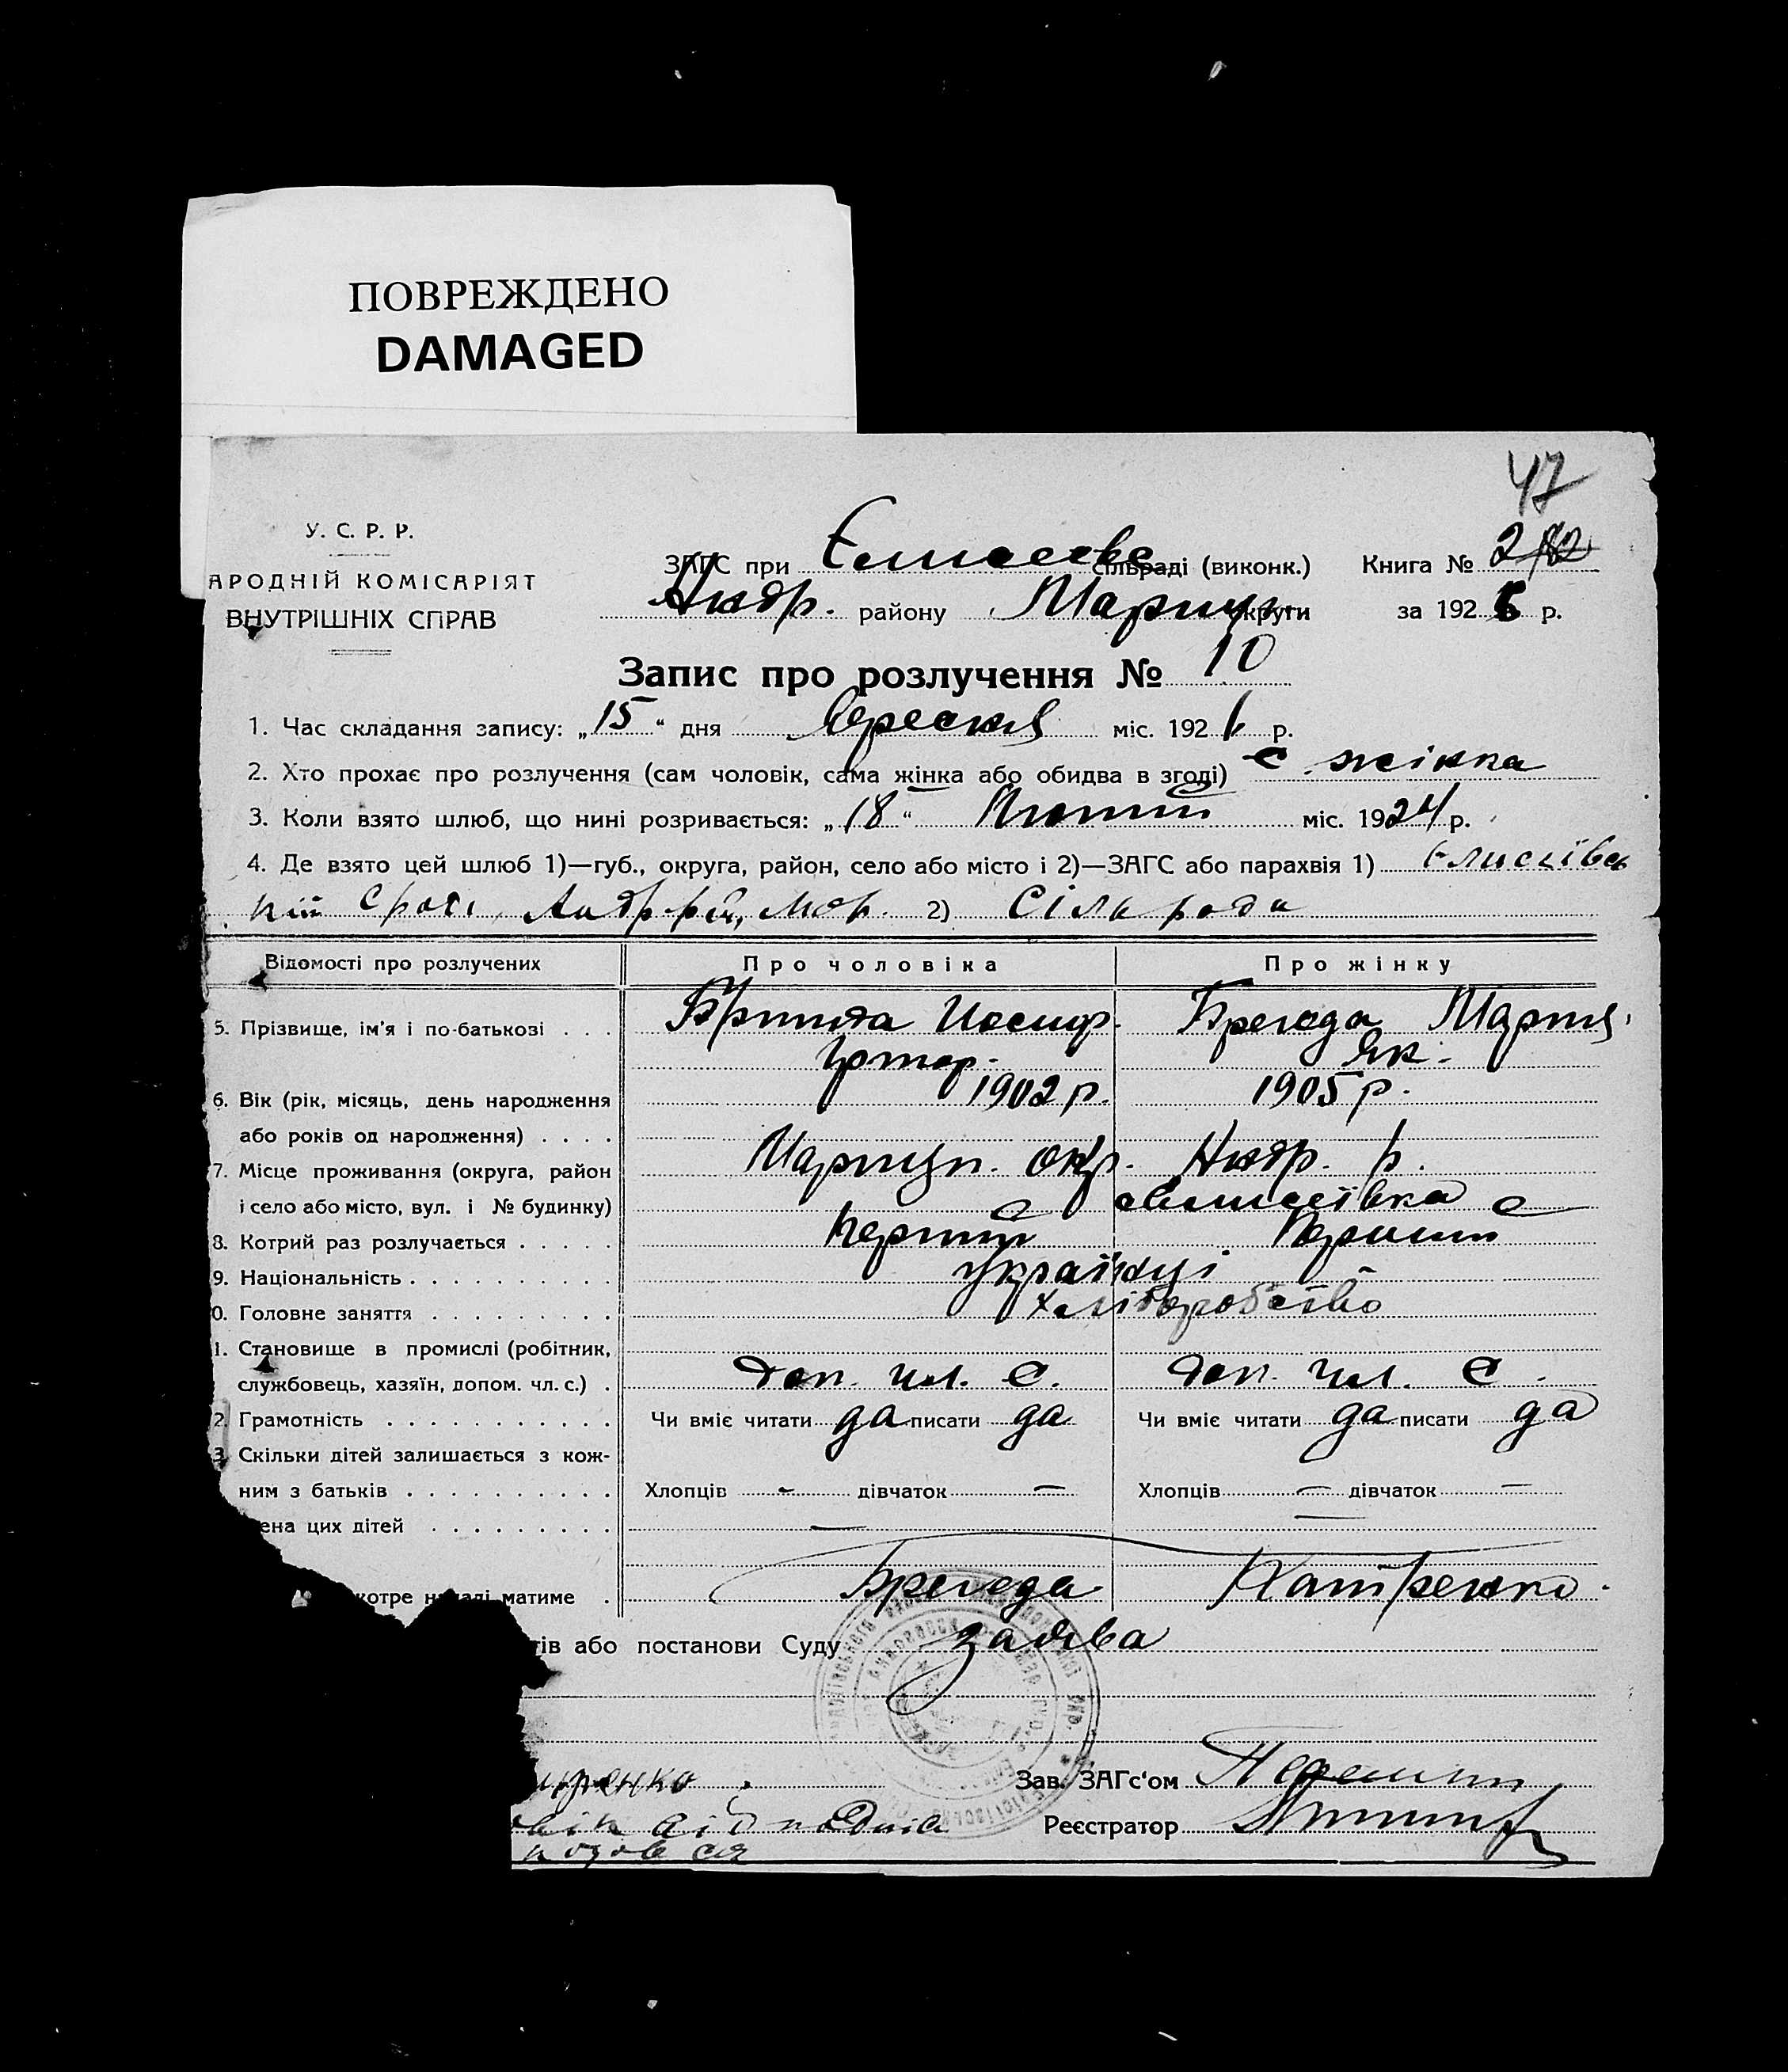 ПОВРЕЖДЕНО
DAMAGED
47
У. С. Р. Р.
АРОДНІЙ КОМІСАРІЯТ
ВНУТРІШНІХ СПРАВ
ЗАГС при Єлисеевс сільраді (виконк.) Книга №
Андр. району Мариуп. округи за 1926 р.
Запис про розлучення № 10
1. Час складання запису: „15“ дня Вресня міс. 1926 р.
2. Хто прохає про розлучення (сам чоловік, сама жінка або обидва в згоді) жінка
3. Коли взято шлюб, що нині розривається: „18“ Лютий міс. 1924 р.
4. Де взято цей шлюб 1)—губ., округа, район, село або місто і 2)—ЗАГС або парахвія 1) Єлисеївсь
кій Сраді, Андр. рай, Мар. 2) Сільрада
Відомості про розлучених Про чоловіка Про жінку
5. Прізвище, ім'я і по-батькові . . . Иосиф. Брегеда Мария
Як.
6. Вік (рік, місяць, день народження 1902 р. 1905 р.
або років од народження) . . . .
7. Місце проживання (округа, район Мариуп. окр. Андр. р.
і село або місто, вул. і № будинку) с Єлисеївка
8. Котрий раз розлучається . . . . . Перший Перший
9. Національність . . . . . . . . . . Українці
0. Головне заняття . . . . . . . . . Хліборобство
1. Становище в промислі (робітник,
службовець, хазяїн, допом. чл. с.) . доп. чл. с. доп. чл. с.
2. Грамотність . . . . . . . . . . . Чи вміє читати да писати да Чи вміє читати да писати да
3. Скільки дітей залишається з кож-
ним з батьків . . . . . . . . . . Хлопців — дівчаток — Хлопців — дівчаток —
ена цих дітей . . . . . . . . . — —
котре надалі матиме . Брегеда Катренко.
тів або постанови Суду заява
Зав. ЗАГс'ом
Реєстратор